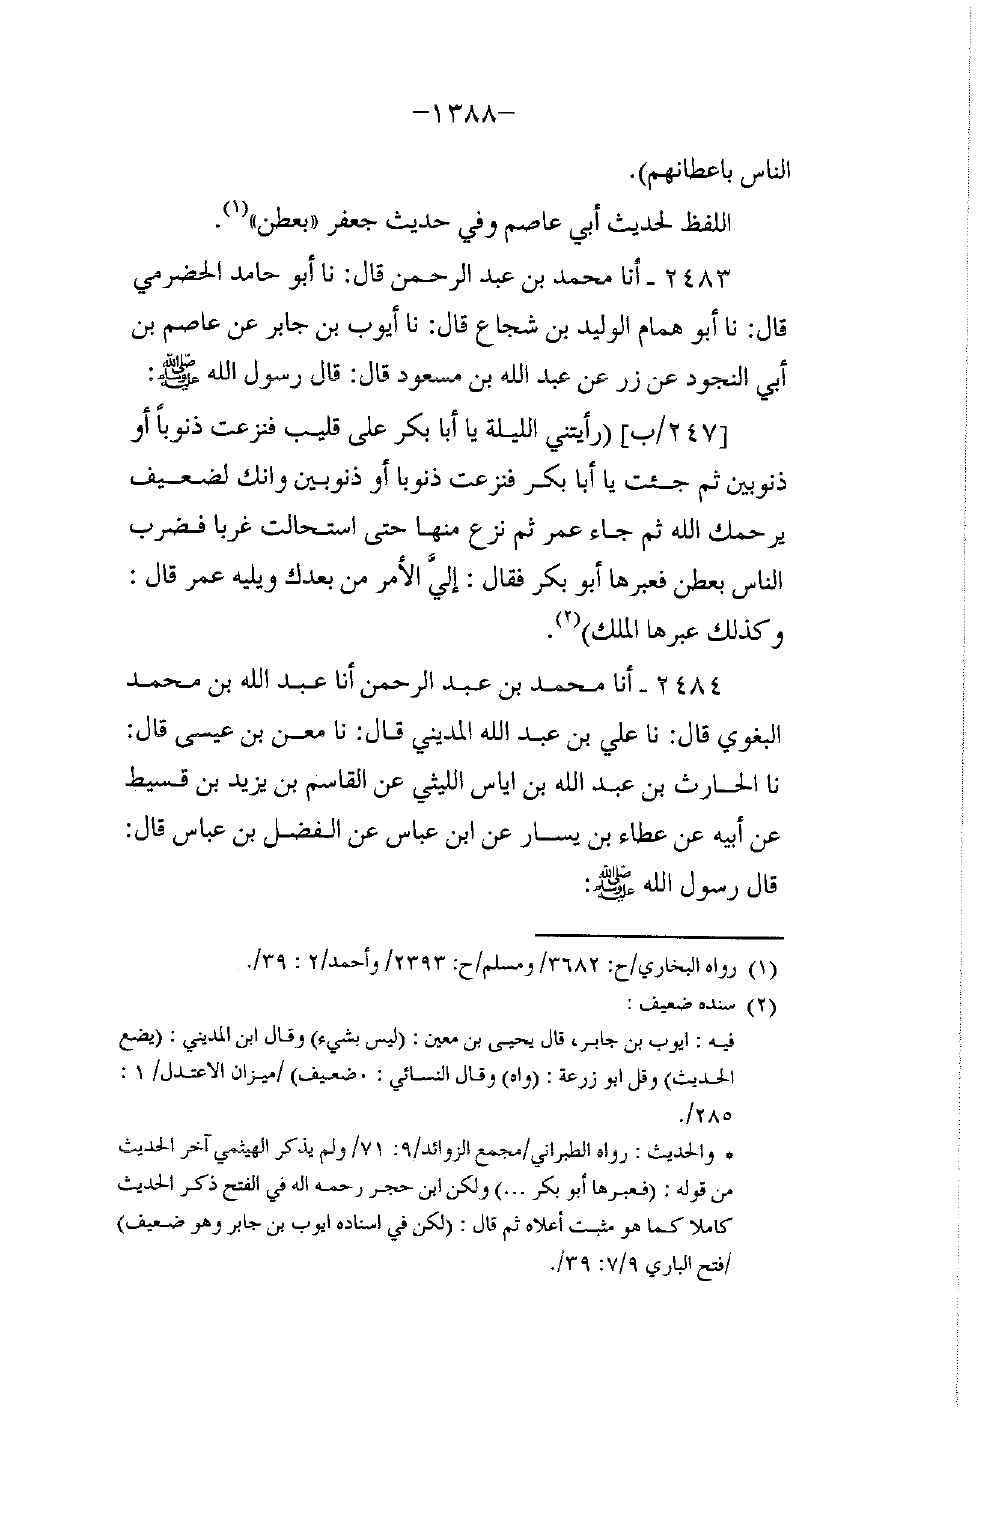 -١٣٨٨-
الناس باعطانهم).
اللفظ لحديث أبي عاصم وفي حديث جعفر «بعطن»(١).
٢٤٨٣ ـ أنا محمد بن عبد الرحمن قال: نا أبو حامد الحضرمي
قال: نا أبو همام الوليد بن شجاع قال: نا أيوب بن جابر عن عاصم بن
أبي النجود عن زر عن عبد الله بن مسعود قال: قال رسول الله ﷺ:
[٢٤٧/ب] (رأيتني الليلة يا أبا بكر على قليب فنزعت ذنوباً أو
ذنوبين ثم جئت يا أبا بكر فنزعت ذنوبا أو ذنوبين وانك لضعيف
يرحمك الله ثم جاء عمر ثم نزع منها حتى استحالت غربا فضرب
الناس بعطن فعبرها أبو بكر فقال : إليَّ الأمر من بعدك ويليه عمر قال :
وكذلك عبرها الملك)(٢).
٢٤٨٤ ـ أنا محمد بن عبد الرحمن أنا عبد الله بن محمد
البغوي قال: نا علي بن عبد الله المديني قال: نا معن بن عيسى قال:
نا الحارث بن عبد الله بن اياس الليثي عن القاسم بن يزيد بن قسيط
عن أبيه عن عطاء بن يسار عن ابن عباس عن الفضل بن عباس قال:
قال رسول الله ﷺ:
(١) رواه البخاري/ح: ٣٦٨٢/ ومسلم/ح: ٢٣٩٣/ وأحمد/٢ : ٣٩/.
(٢) سنده ضعيف :
فيه : ايوب بن جابر، قال يحيى بن معين : (ليس بشيء) وقال ابن المديني : (يضع
الحديث) وقل ابو زرعة : (واه) وقال النسائي : ٠ضعيف) /ميزان الاعتدل/ ١ :
٢٨٥/.
* والحديث : رواه الطبراني/مجمع الزوائد/٩: ٧١/ ولم يذكر الهيثمي آخر الحديث
من قوله : (فعبرها أبو بكر ...) ولكن ابن حجر رحمه اله في الفتح ذكر الحديث
كاملا كما هو مثبت أعلاه ثم قال : (لكن في اسناده ايوب بن جابر وهو ضعيف)
/فتح الباري ٧/٩: ٣٩/.